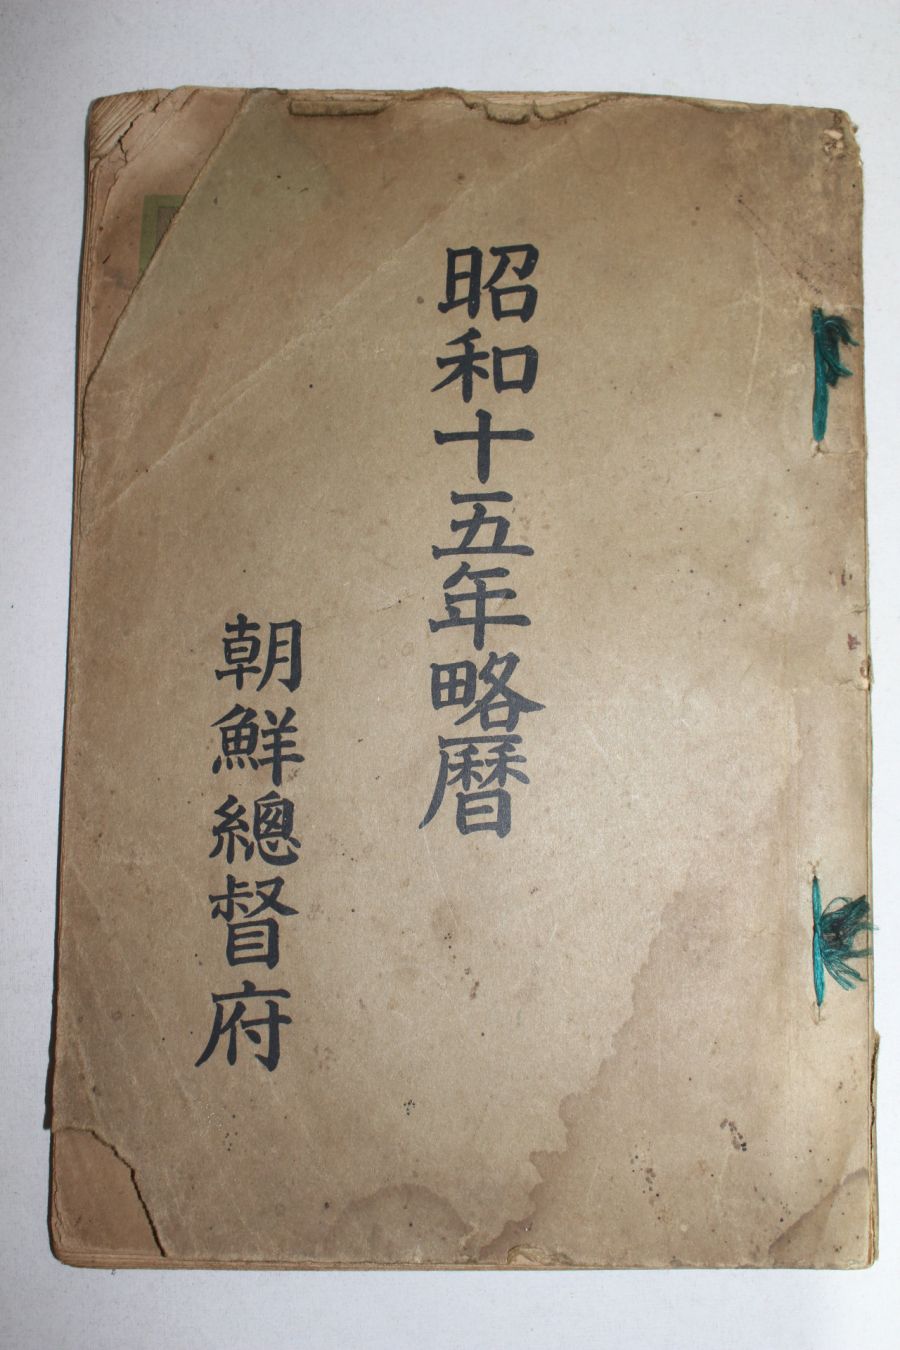 昭和十五年略曆
朝鮮總督府